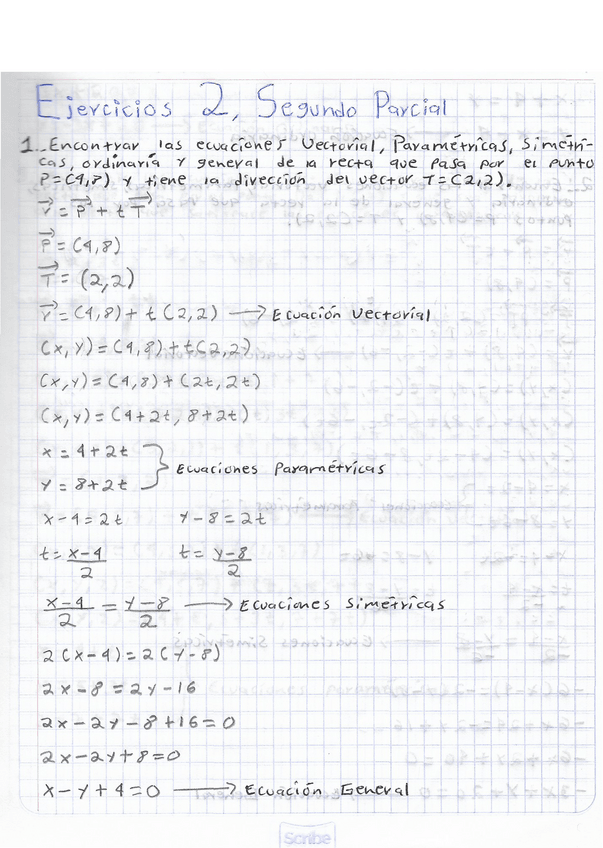 Ejercicios 2, Segundo Parcial
1. Encontrar las ecuaciones Vectorial, Paramétricas, Simétri-
cas, ordinaria y general de la recta que pasa por el punto
P=(4,8) y tiene la dirección del vector T=(2,2).
r⃗ = P⃗ + t T⃗
P⃗ = (4,8)
T⃗ = (2,2)
r⃗ = (4,8) + t (2,2) → Ecuación Vectorial
(x,y) = (4,8) + t(2,2)
(x,y) = (4,8) + (2t, 2t)
(x,y) = (4+2t, 8+2t)
x = 4+2t
y = 8+2t } Ecuaciones Paramétricas
x-4=2t y-8=2t
t= x-4/2 t= y-8/2
x-4/2 = y-8/2 → Ecuaciones Simétricas
2(x-4)=2(y-8)
2x-8=2y-16
2x-2y-8+16=0
2x-2y+8=0
x-y+4=0 → Ecuación General
Scribe